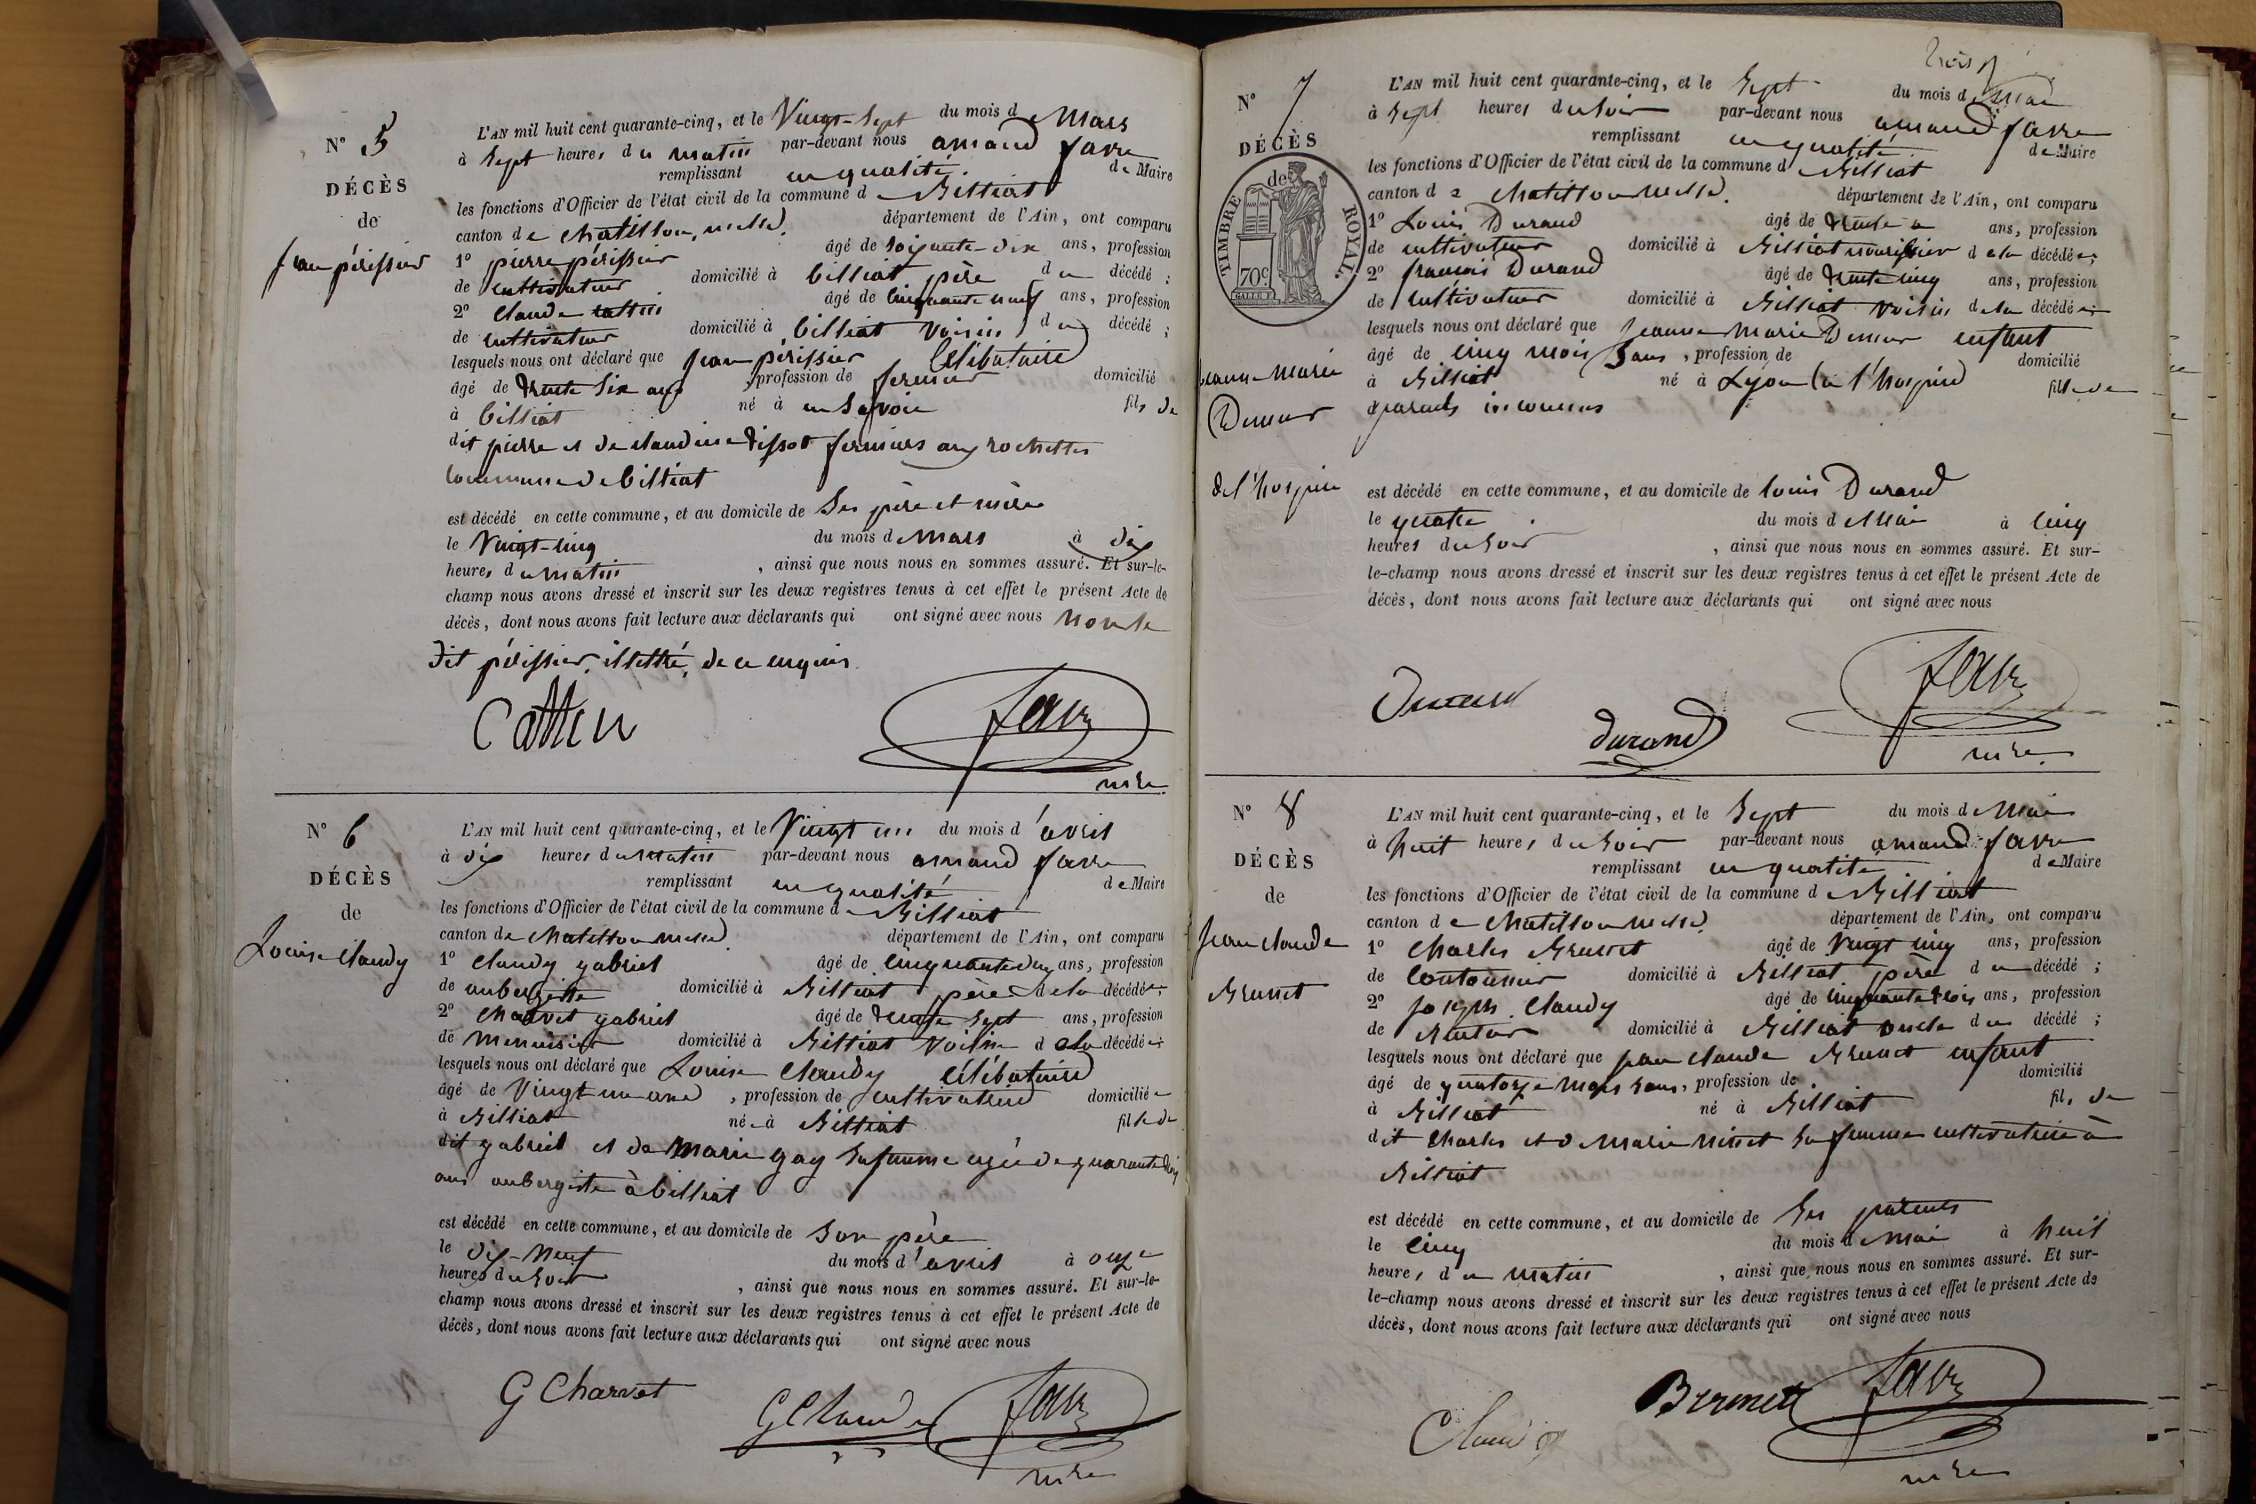 N° 5
DÉCÈS
de
jean périssier
L'AN mil huit cent quarante-cinq, et le Vingt-Sept du mois de Mars
à Sept heures du matin par-devant nous amand favre
remplissant en qualité de Maire
les fonctions d'Officier de l'état civil de la commune de Billiat
canton de Chatillon, michd. département de l'Ain, ont comparu
1° pierre périssier âgé de Soixante-dix ans, profession
de cultivateur domicilié à billiat père du décédé ;
2° Claude cattin âgé de Cinquante neuf ans, profession
de cultivateur domicilié à billiat Voisin du décédé ;
lesquels nous ont déclaré que jean périssier Célibataire
âgé de trente Six ans, profession de fermier domicilié
à billiat né à en Savoie fils de
dit pierre et de claudine fermiers aux rochettes
Commune de billiat
est décédé en cette commune, et au domicile de Ses père et mère
le Vingt-cinq du mois de Mars à dix
heures du Matin, ainsi que nous nous en sommes assuré. Et sur-le-
champ nous avons dressé et inscrit sur les deux registres tenus à cet effet le présent Acte de
décès, dont nous avons fait lecture aux déclarants qui ont signé avec nous non le
dit périssier, illettré, de ce enquis
Cattin
favre
mre
N° 6
DÉCÈS
de
Louise Claudy
L'AN mil huit cent quarante-cinq, et le Vingt un du mois d'avril
à dix heures du matin par-devant nous amand favre
remplissant en qualité de Maire
les fonctions d'Officier de l'état civil de la commune de Billiat
canton de Chatillon michd. département de l'Ain, ont comparu
1° Claudy gabriel âgé de Cinquante deux ans, profession
de aubergiste domicilié à Billiat père de la décédée ;
2° Charvet gabriel âgé de trente Sept ans, profession
de Menuisier domicilié à Billiat Voisin de la décédée ;
lesquels nous ont déclaré que Louise Claudy Célibataire
âgé de Vingt un ans, profession de cultivatrice domiciliée
à Billiat née à Billiat fille de
dit gabriel et de Marie gay Sa femme agée de quarante
ans aubergiste à billiat
est décédé en cette commune, et au domicile de Son père
le dix-Neuf du mois d'avril à onze
heures du Soir, ainsi que nous nous en sommes assuré. Et sur-le-
champ nous avons dressé et inscrit sur les deux registres tenus à cet effet le présent Acte de
décès, dont nous avons fait lecture aux déclarants qui ont signé avec nous
G Charvet
G Claudy
favre
mre
trois
N° 7
DÉCÈS
de
TIMBRE ROYAL.
70c
Jeanne Marie
Demur
de l'hospice
L'AN mil huit cent quarante-cinq, et le Sept du mois de Mai
à Sept heures du Soir par-devant nous amand favre
remplissant en qualité de Maire
les fonctions d'Officier de l'état civil de la commune de Billiat
canton de Chatillon michd. département de l'Ain, ont comparu
1° Louis Durand âgé de trente un ans, profession
de cultivateur domicilié à Billiat nourricier de la décédée ;
2° françois Durand âgé de trente cinq ans, profession
de Cultivateur domicilié à Billiat Voisin de la décédée ;
lesquels nous ont déclaré que Jeanne Marie Demur enfant
âgé de Cinq mois Sans, profession de domicilié
à Billiat né à Lyon (à l'hospice) fille de
parents inconnus
est décédé en cette commune, et au domicile de Louis Durand
le quatre du mois de Mai à Cinq
heures du Soir, ainsi que nous nous en sommes assuré. Et sur-
le-champ nous avons dressé et inscrit sur les deux registres tenus à cet effet le présent Acte de
décès, dont nous avons fait lecture aux déclarants qui ont signé avec nous
Durand
durand
favre
mre.
N° 8
DÉCÈS
de
Jean Claude
Brunet
L'AN mil huit cent quarante-cinq, et le Sept du mois de Mai
à huit heures du Soir par-devant nous amand favre
remplissant en qualité de Maire
les fonctions d'Officier de l'état civil de la commune de Billiat
canton de Chatillon michd. département de l'Ain, ont comparu
1° Charles Brunet âgé de Vingt cinq ans, profession
de Cantonnier domicilié à Billiat père du décédé ;
2° joseph Claudy âgé de Cinquante trois ans, profession
de Rentier domicilié à Billiat oncle du décédé ;
lesquels nous ont déclaré que jean claude Brunet enfant
âgé de quatorze Mois Sans, profession de domicilié
à Billiat né à Billiat fils de
dit Charles et de Marie Ninet Sa femme cultivatrice à
Billiat
est décédé en cette commune, et au domicile de Ses parents
le Cinq du mois de Mai à huit
heures du Matin, ainsi que nous nous en sommes assuré. Et sur-
le-champ nous avons dressé et inscrit sur les deux registres tenus à cet effet le présent Acte de
décès, dont nous avons fait lecture aux déclarants qui ont signé avec nous
Claudy
Brunet
favre
mre